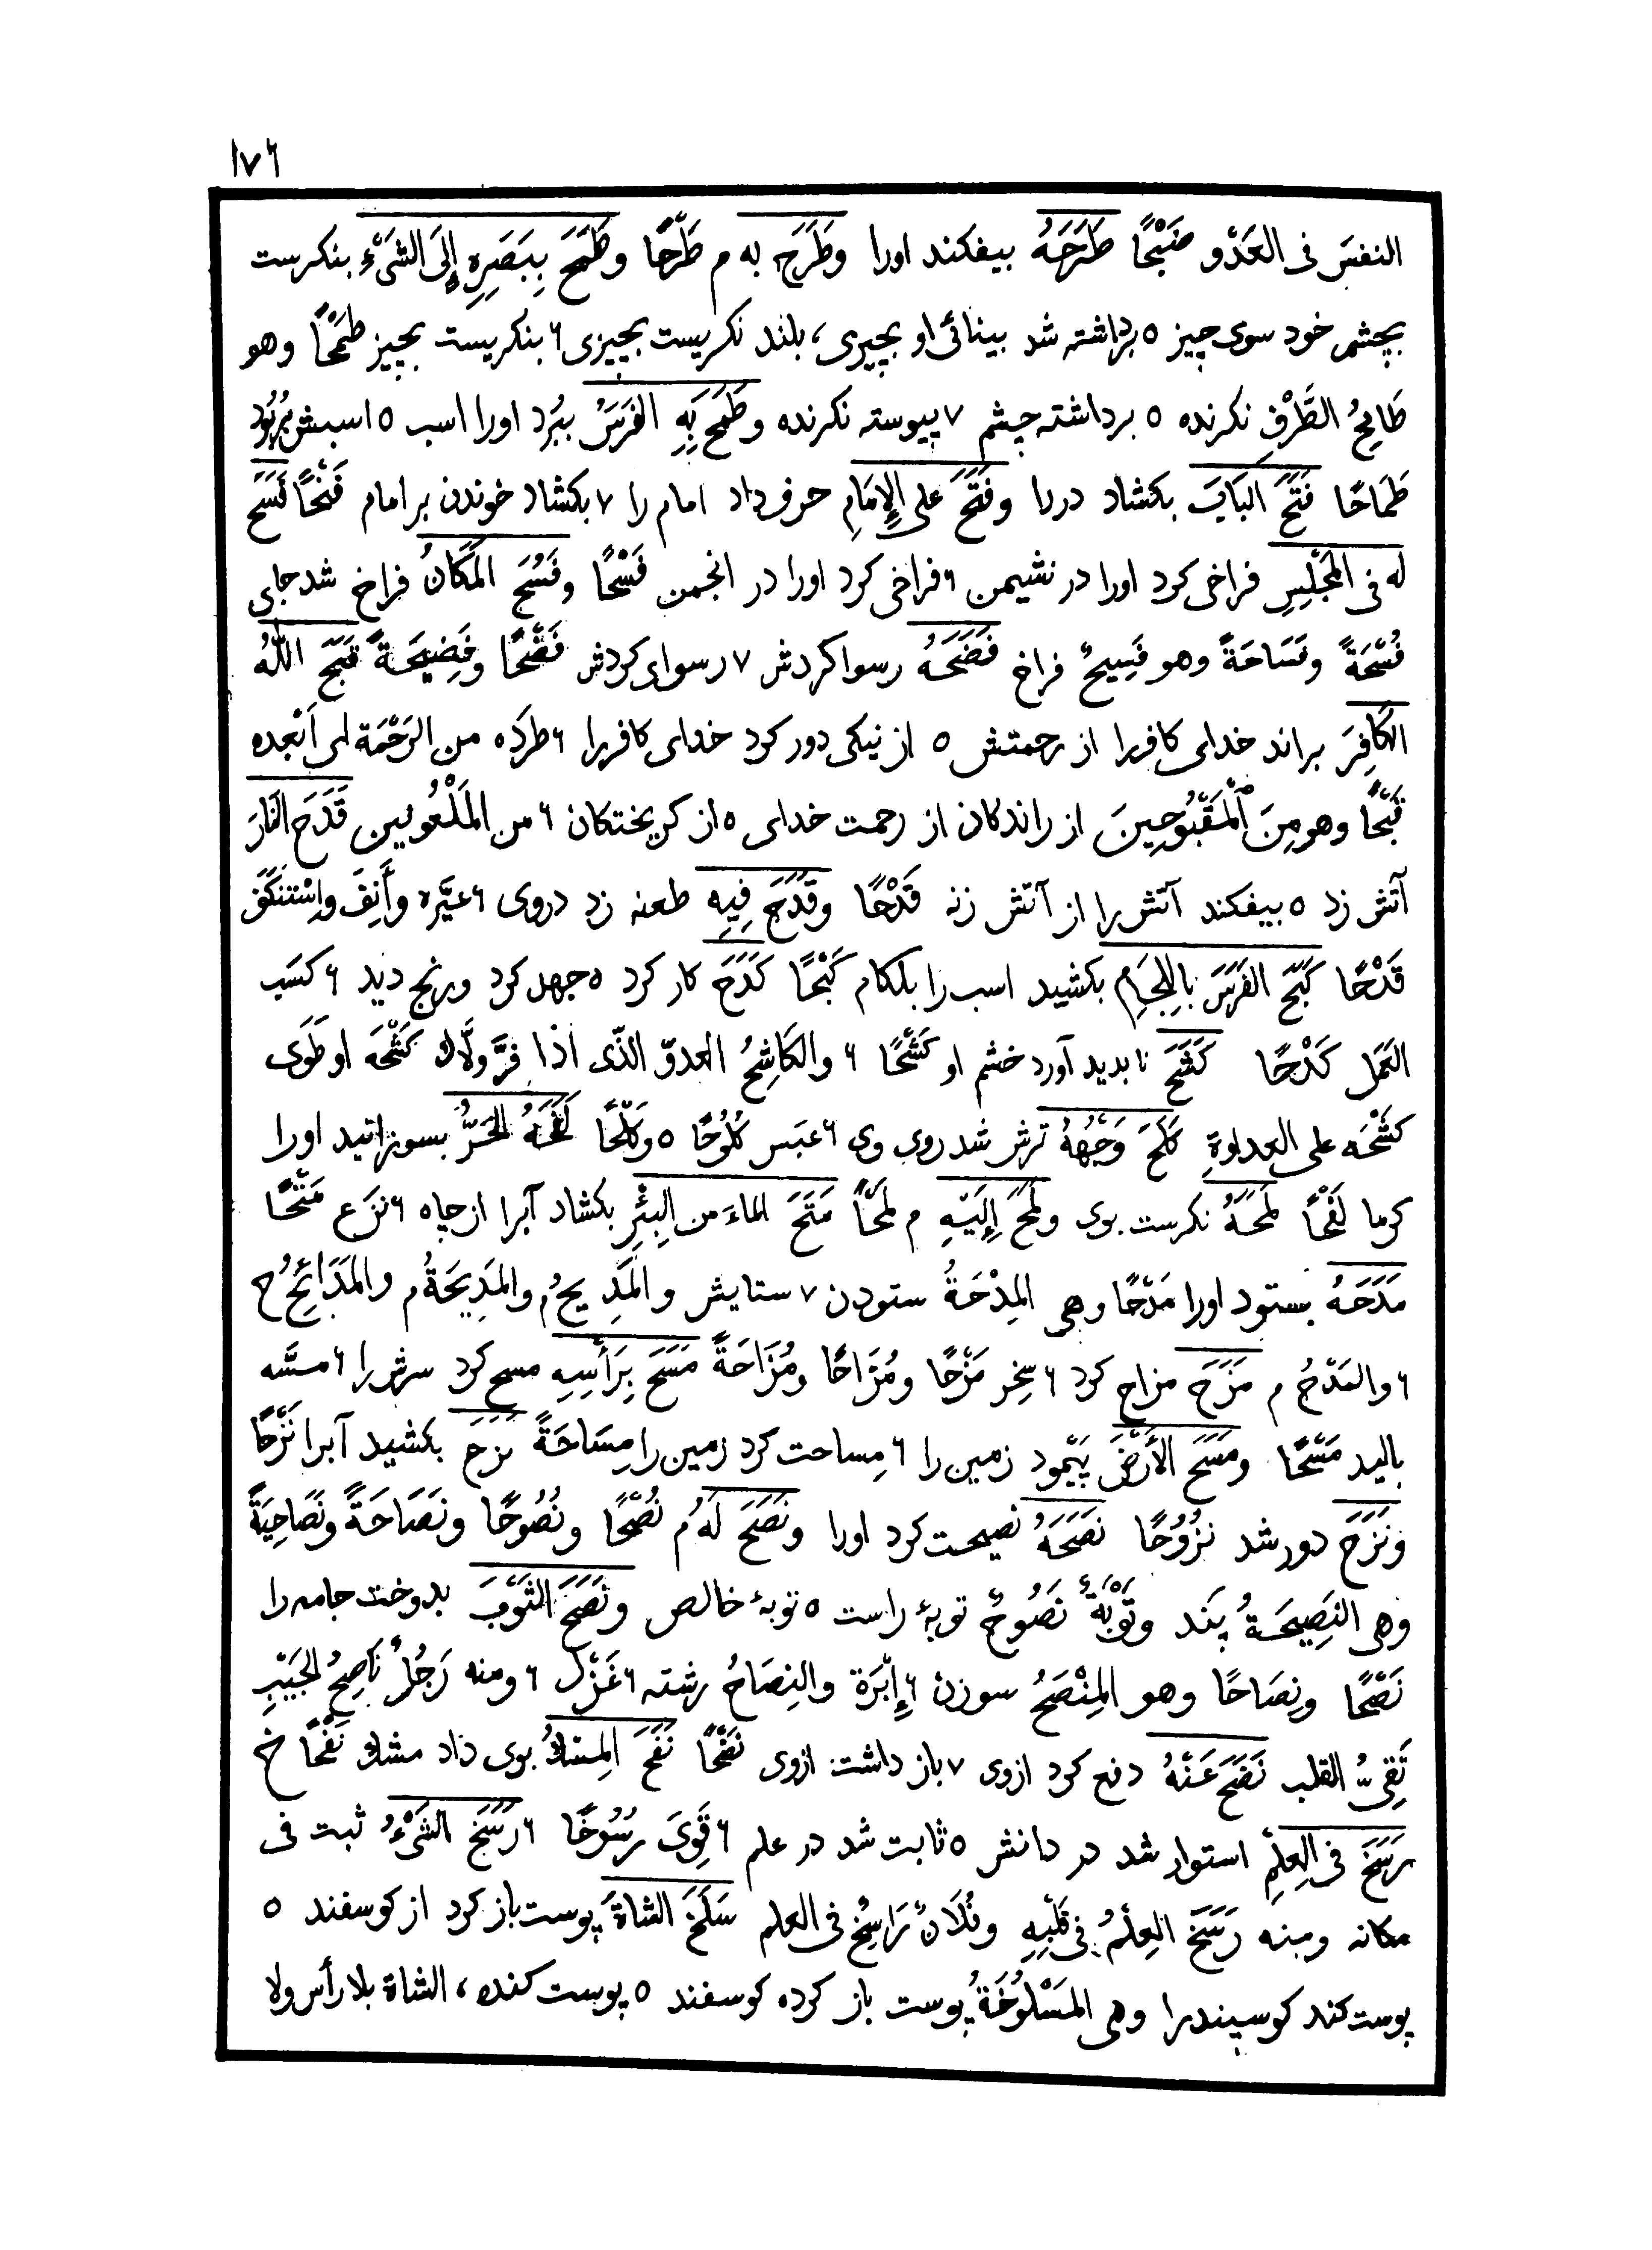 ۱۷۶
النفسَ فی العَدْو ضَبْحًا طَرَحَهُ بیفکند اورا وطَرَحَ به م طَرْحًا وطَمَحَ بِبَصَرِهِ إِلَی الشَیْءِ بنکرست
بچشم خود سوی چیز ٥ برداشته شد بینائی او بچیزی، بلند نکریست بچیزی ۶ بنکریست بچیز طَمْحًا وهو
طَامِحُ الطَّرْفِ نکرنده ٥ برداشته چشم ٧ پیوسته نکرنده وطَمَحَ بِهِ الفَرَسُ ببُرد اورا اسب ٥ اسبش بربُود
طَمَاحًا فَتَحَ البَابَ بکشاد دررا وفَتَحَ علی الإِمَامِ حرف داد امام را ٧ بکشاد خوندن بر امام فَتْحًا فَسَحَ
له فی المَجْلِسِ فراخی کرد اورا در نشیمن ۶ فراخی کرد اورا در انجمن فَسْحًا وفَسُحَ المَکَانُ فراخ شد جای
فُسْحَةً وفَسَاحَةً وهو فَسِیحٌ فراخ فَضَحَهُ رسوا کردش ٧ رسوای کردش فَضْحًا وفَضِیحَةً قَبَحَ اللّٰهُ
الکَافِرَ براند خدای کافررا از رحمتش ٥ از نیکی دور کرد خدای کافررا ۶ طردَه من الرَحْمَة ای اَبْعده
قَبْحًا وهو مِنَ ٱلْمَقْبُوحِینَ از راندکان از رحمت خدای ٥ از کریختکان ۶ من المَلْعُونین قَدَحَ النَارَ
آتش زد ٥ بیفکند آتش را از آتش زنه قَدْحًا وقَدَحَ فِیهِ طعنه زد دروی ۶ عَیَّره وأَنِفَ واِسْتنکَفَ
قَدْحًا کَبَحَ الفَرَسَ بِالِلجَامِ بکشید اسب را بلکام کَبْحًا کَدَحَ کار کرد ٥ جهد کرد ورنج دید ۶ کسَب
العَمَل کَدْحًا کَشَحَ نابدید آورد خشم او کَشْحًا ۶ والکَاشِحُ العدوّ الذّی اذا فرَّ ولَّاك کَشْحَه او طَوَی
کَشْحَه علی العداوةِ کَلَحَ وَجْهُهُ ترش شد روی وی ۶ عبَس کُلُوحًا ٥ وکَلْحًا لَفَحَهُ الحَرُّ بسوزانید اورا
کرما لَفْحًا لَمَحَهُ نکرست بوی ولَمَحَ إِلَیْهِ م لَمْحًا مَتَحَ الماءَ من البِئْرِ بکشاد آبرا از چاه ۶ نزَع مَتْحًا
مَدَحَهُ بستود اورا مَدْحًا وهی المِدْحَةُ ستودن ٧ ستایش والمَدِیحُ م والمَدِیحَةُ م والمَدَائِحُ ج
۶ والمَدْحُ م مَزَحَ مزاح کرد ۶ سخِر مَزْحًا ومُزَاحًا ومُزَاحَةً مَسَحَ بِرَأسِهِ مسح کرد سرش را ۶ مسَّه
بالید مَسْحًا ومَسَحَ الأَرْضَ پَیْمود زمین را ۶ مِساحت کرد زمین را مِسَاحَةً نَزَحَ بکشید آبرا نَزْحًا
ونَزَحَ دور شد نزُوُحًا نَصَحَهُ نصیحت کرد اورا ونَصَحَ لَهُ م نُصْحًا ونُصُوحًا ونَصَاحَةً ونَصَاحِیَةً
وهی النَصِیحَةُ پند وتَوْبَةٌ نَصُوحٌ توبۀ راست ٥ توبۀ خالص ونَصَحَ الثَوْبَ بدوخت جامه را
نَصْحًا ونِصَاحًا وهو المِنْصَحُ سوزن ۶ إِبْرَة والنِصَاحُ رشته ۶ غَزْل ۶ ومنه رَجُلٌ نَاصِحُ الجَیْبِ
نَقِیُّ القلب نَضَحَ عَنْهُ دفع کرد ازوی ٧ باز داشت ازوی نَضْحًا نَفَحَ المِسْكُ بوی داد مشك نَفْحًا خ
رَسَخَ فی العِلْمِ استوار شد در دانش ٥ ثابت شد در علم ۶ قَوِیَ رسُوُخًا ۶ رَسَخَ الشَیْءُ ثبت فی
مکانه ومنه رَسَخَ العِلْمُ فی قَلْبِهِ وفُلَانٌ رَاسِخٌ فی العلم سَلَخَ الشاةَ پوست باز کرد از کوسفند ٥
پوست کند کوسپندرا وهی المَسْلُوخَةُ پوست باز کرده کوسفند ٥ پوست کنده، الشاة بلا رأس ولا